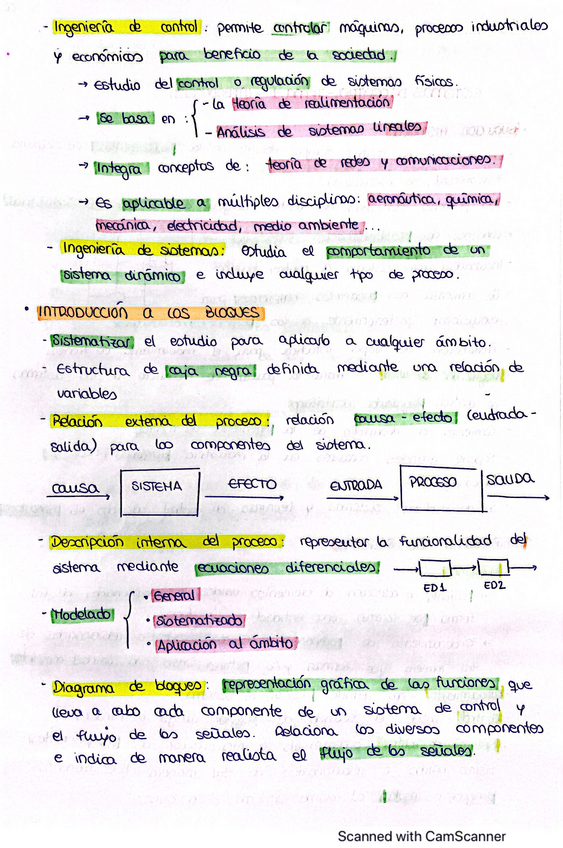 - Ingeniería de control: permite controlar máquinas, procesos industriales
y económicos para beneficio de la sociedad.
→ estudio del control o regulación de sistemas físicos.
→ se basa en: { - la teoría de realimentación
- Análisis de sistemas lineales
→ Integra conceptos de: teoría de redes y comunicaciones.
→ Es aplicable a múltiples disciplinas: aeronáutica, química,
mecánica, electricidad, medio ambiente...
- Ingeniería de sistemas: estudia el comportamiento de un
sistema dinámico e incluye cualquier tipo de proceso.
• INTRODUCCIÓN A LOS BLOQUES
- Sistematizar el estudio para aplicarlo a cualquier ámbito.
- Estructura de caja negra definida mediante una relación de
variables
- Relación externa del proceso: relación causa-efecto (entrada-
salida) para los componentes del sistema.
causa SISTEMA EFECTO ENTRADA PROCESO SALIDA
- Descripción interna del proceso: representar la funcionalidad del
sistema mediante ecuaciones diferenciales
ED1 ED2
- Modelado { • General
• Sistematizado
• Aplicación al ámbito
- Diagrama de bloques: representación gráfica de las funciones que
lleva a cabo cada componente de un sistema de control y
el flujo de las señales. Relaciona los diversos componentes
e indica de manera realista el flujo de las señales.
Scanned with CamScanner